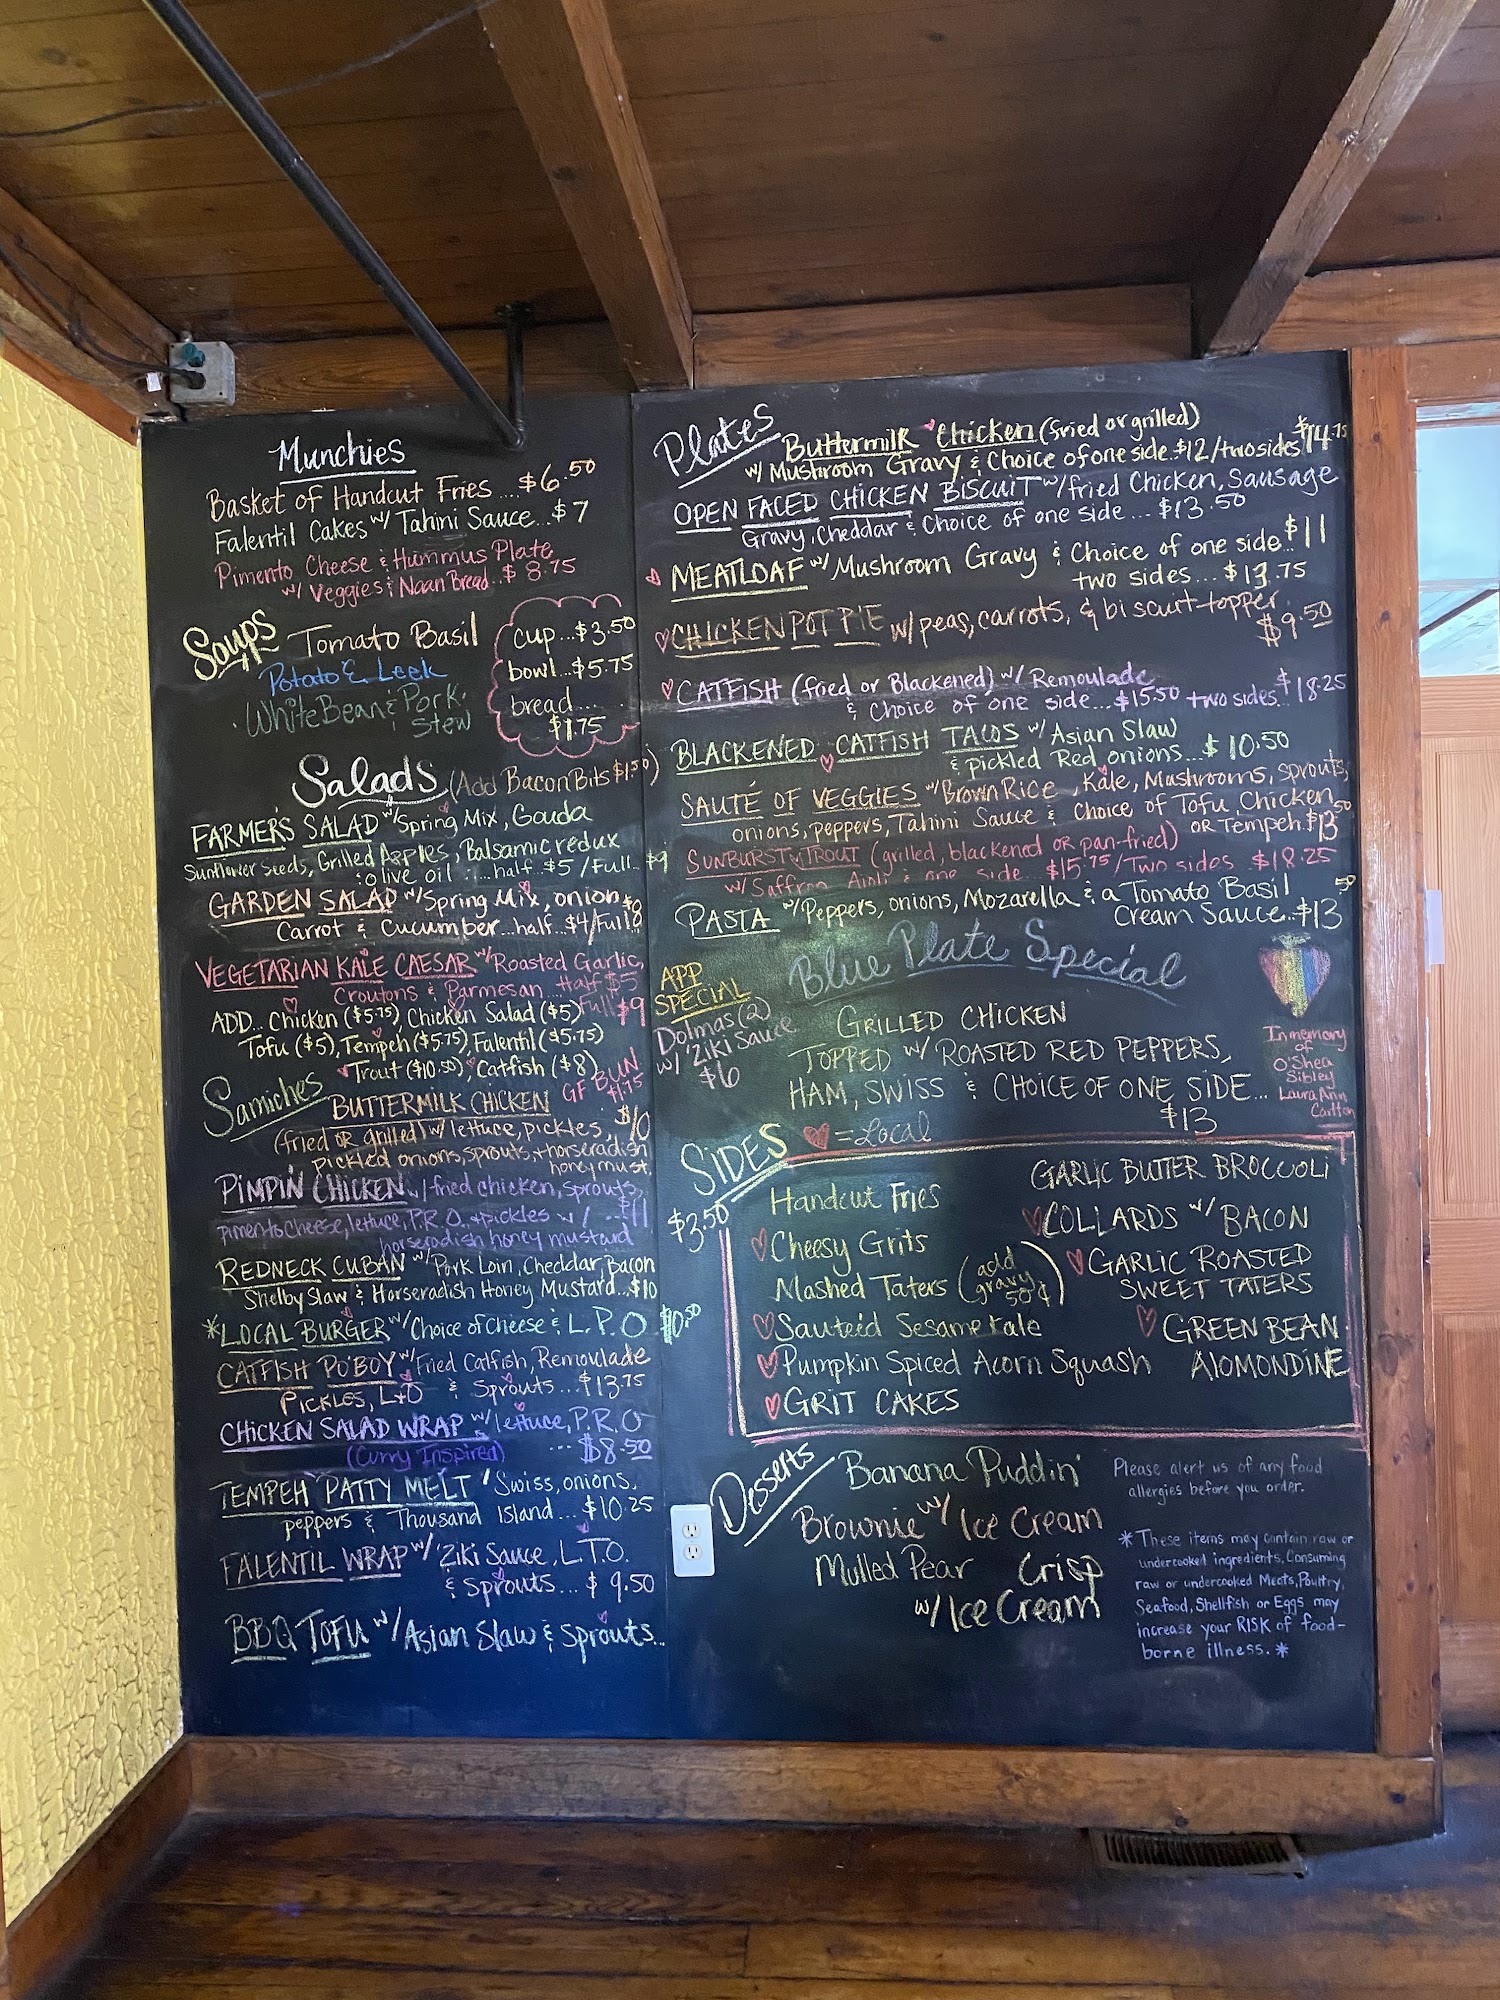 Munchies
Basket of Handcut Fries....$6.50
Falentil Cakes w/ Tahini Sauce...$7
Pimento Cheese & Hummus Plate
w/ Veggies & Naan Bread...$8.75
Soups
Tomato Basil
Potato & Leek
White Bean & Pork
Stew
cup...$3.50
bowl...$5.75
bread....
$1.75
Salads (Add Bacon Bits $1.50)
FARMER'S SALAD w/ Spring Mix, Gouda
Sunflower Seeds, Grilled Apples, Balsamic redux
& olive oil ....half..$5/Full..$9
GARDEN SALAD w/ Spring Mix, onion
Carrot & Cucumber...half...$4/Full $8
VEGETARIAN KALE CAESAR w/ Roasted Garlic,
Croutons & Parmesan....Half $5
Full $9
ADD... Chicken ($5.75), Chicken Salad ($5)
Tofu ($5), Tempeh ($5.75) Falentil ($5.75)
Trout ($10.50), Catfish ($8)
GF BUN
$1.75
Samiches
BUTTERMILK CHICKEN
(fried OR grilled) w/ lettuce, pickles, $10
pickled onions, sprouts, + horseradish
honey must.
PIMPIN' CHICKEN w/ fried chicken, sprouts,
pimento cheese, lettuce, P.R.O. + pickles w/ ...$11
horseradish honey mustard
REDNECK CUBAN w/ Pork Loin, Cheddar, Bacon
Shelby Slaw & Horseradish Honey Mustard...$10
*LOCAL BURGER w/ Choice of Cheese & L.P.O $10.50
CATFISH PO'BOY w/ Fried Catfish, Remoulade
Pickles, L+O & Sprouts...$13.75
CHICKEN SALAD WRAP w/ lettuce, P.R.O
(Curry Inspired) ...$8.50
TEMPEH PATTY MELT w/ Swiss, onions,
peppers & Thousand Island....$10.25
FALENTIL WRAP w/ 'Ziki Sauce, L.T.O.
& Sprouts...$9.50
BBQ TOFU w/ Asian Slaw & Sprouts..
Plates
Buttermilk Chicken (fried or grilled)
w/ Mushroom Gravy & Choice of one side.$12/two sides $14.75
OPEN FACED CHICKEN BISCUIT w/ fried Chicken, Sausage
Gravy, Cheddar & Choice of one side...$13.50
MEATLOAF w/ Mushroom Gravy & Choice of one side..$11
two sides...$13.75
CHICKEN POT PIE w/ peas, carrots, & biscuit topper
$9.50
CATFISH (fried or Blackened) w/ Remoulade
& Choice of one side...$15.50 two sides..$18.25
BLACKENED CATFISH TACOS w/ Asian Slaw
& pickled Red onions...$10.50
SAUTÉ OF VEGGIES w/ Brown Rice, Kale, Mushrooms, Sprouts,
onions, peppers, Tahini Sauce & Choice of Tofu, Chicken
OR Tempeh.$13.50
SUNBURST TROUT (grilled, blackened OR pan-fried)
w/ Saffron Aioli & one side...$15.75/Two sides $18.25
PASTA w/ Peppers, onions, Mozarella & a Tomato Basil
Cream Sauce..$13.50
APP
SPECIAL
Dolmas (2)
w/ 'Ziki Sauce
$6
Blue Plate Special
GRILLED CHICKEN
TOPPED w/ ROASTED RED PEPPERS,
HAM, SWISS & CHOICE OF ONE SIDE...
$13
In memory
of
O'Shea
Sibley
Laura Ann
Carlton
SIDES
= Local
$3.50
Handcut Fries
Cheesy Grits
Mashed Taters (add gravy 50¢)
Sauteéd Sesame Kale
Pumpkin Spiced Acorn Squash
GRIT CAKES
GARLIC BUTTER BROCCOLI
COLLARDS w/ BACON
GARLIC ROASTED
SWEET TATERS
GREEN BEAN
AlOMONDINE
Desserts
Banana Puddin'
Brownie w/ Ice Cream
Mulled Pear Crisp
w/ Ice Cream
Please alert us of any food
allergies before you order.
*These items may contain raw or
undercooked ingredients. Consuming
raw or undercooked Meats, Poultry,
Seafood, Shellfish or Eggs may
increase your RISK of food-
borne illness.*